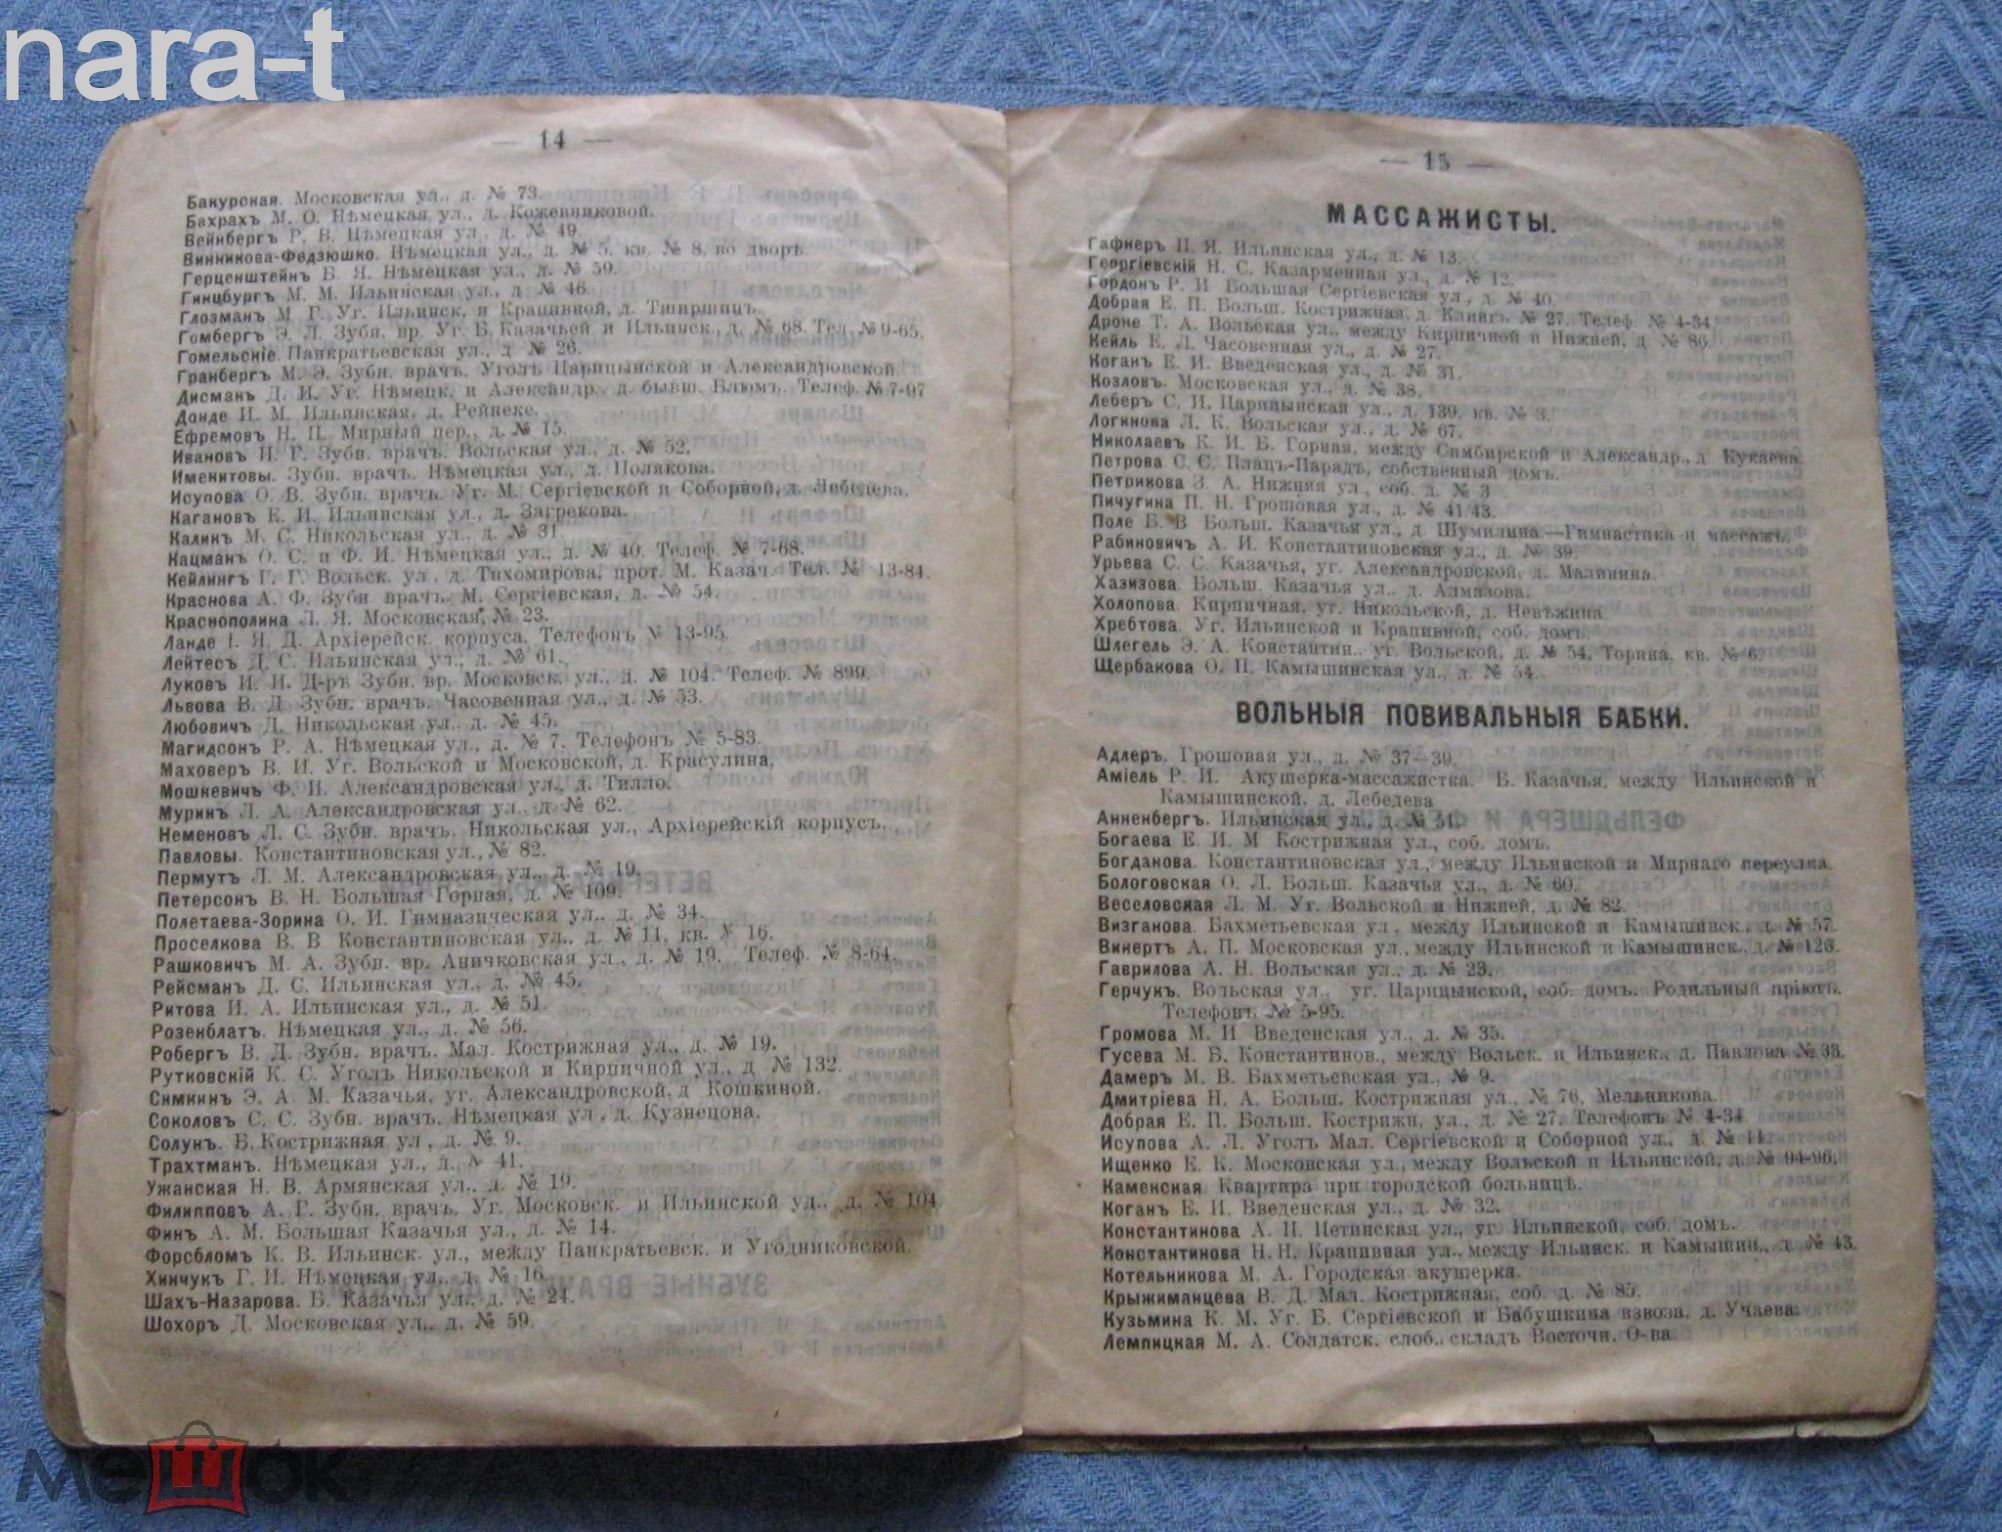 nara-t
— 14 —
Бакурская. Московская ул., д. № 73.
Бахрахъ М. О. Нѣмецкая ул., д. Кожевниковой.
Вейнбергъ Р. В. Нѣмецкая ул., д. № 49.
Винникова-Федзюшко. Нѣмецкая ул., д. № 5. кв. № 8, во дворѣ.
Герценштейнъ Б. Я. Нѣмецкая ул., д. № 59.
Гинцбургъ М. М. Ильинская ул., д № 46.
Глозманъ М. Г. Уг. Ильинск. и Крапивной, д. Тширшицъ.
Гомбергъ Э. Л. Зубн. вр. Уг. Б. Казачьей и Ильинск., д. № 68. Тел. № 9-65.
Гомельскіе. Панкратьевская ул., д № 26.
Гранбергъ М. Э. Зубн. врачъ. Уголъ Царицынской и Александровской.
Дисманъ Д. И. Уг. Нѣмецк. и Александр., д. бывш. Блюмъ. Телеф. № 7-97
Донде И. М. Ильинская, д. Рейнеке.
Ефремовъ Н. П. Мирный пер., д. № 15.
Ивановъ И. Г. Зубн. врачъ. Вольская ул., д. № 52.
Именитовы. Зубн. врач. Нѣмецкая ул., д. Полякова.
Исупова О. В. Зубн. врач. Уг. М. Сергіевской и Соборной, д. Лебедева.
Кагановъ Е. И. Ильинская ул., д. Загрекова.
Калинъ М. С. Никольская ул., д. № 31.
Кацманъ О. С. и Ф. И. Нѣмецкая ул., д. № 40. Телеф. № 7-68.
Кейлингъ Г. Г. Вольск. ул., д. Тихомирова, прот. М. Казач. Тел. № 13-84.
Краснова А. Ф. Зубн врачъ. М. Сергіевская, д. № 54.
Краснополина Л. Я. Московская, № 23.
Ланде І. Я. Д. Архіерейск. корпуса, Телефонъ № 13-95.
Лейтесъ Д. С. Ильинская ул., д. № 61.
Луковъ И. И. Д-ръ Зубн. вр. Московск. ул., д. № 104. Телеф. № 899.
Львова В. Д. Зубн. врач. Часовенная ул., д. № 53.
Любовичъ Д. Никольская ул. д. № 45.
Магидсонъ Р. А. Нѣмецкая ул., д. № 7. Телефонъ № 5-83.
Маховеръ В. И. Уг. Вольской и Московской, д. Красулина,
Мошкевичъ Ф. И. Александровская ул., д. Тилло.
Муринъ Л. А. Александровская ул., д. № 62.
Неменовъ Л. С. Зубн. врачъ. Никольская ул., Архіерейскій корпусъ.
Павловы. Константиновская ул., № 82.
Пермутъ Л. М. Александровская ул., д. № 19.
Петерсонъ В. Н. Большая Горная, д. № 109.
Полетаева-Зорина О. И. Гимназическая ул., д. № 34.
Проселкова В. В Константиновская ул., д. № 11, кв. № 16.
Рашковичъ М. А. Зубн. вр. Аничковская ул., д. № 19. Телеф. № 8-64.
Рейсманъ Д. С. Ильинская ул., д. № 45.
Ритова И. А. Ильинская ул., д. № 51.
Розенблатъ. Нѣмецкая ул., д. № 56.
Робергъ В. Д. Зубн. врачъ. Мал. Кострижная ул., д. № 19.
Рутковскій К. С. Уголъ Никольской и Кирпичной ул., д № 132.
Симкинъ Э. А. М. Казачья, уг. Александровской, д Кошкиной.
Соколовъ С. С. Зубн. врачъ. Нѣмецкая ул., д. Кузнецова.
Солунъ. Б. Кострижная ул., д. № 9.
Трахтманъ. Нѣмецкая ул., д. № 41.
Ужанская Н. В. Армянская ул., д. № 19.
Филипповъ А. Г. Зубн. врачъ. Уг. Московск. и Ильинской ул., д. № 104.
Финъ А. М. Большая Казачья ул., д. № 14.
Форсбломъ К. В. Ильинск. ул., между Панкратьевск. и Угодниковской.
Хинчукъ Г. И. Нѣмецкая ул., д. № 16.
Шахъ-Назарова. Б. Казачья ул., д. № 21.
Шохоръ Д. Московская ул., д. № 59.
— 15 —
МАССАЖИСТЫ.
Гафнеръ П. Я. Ильинская ул., д. № 13.
Георгіевскій Н. С. Казарменная ул., д. № 12.
Гордонъ Р. И Большая Сергіевская ул., д. № 40.
Добрая Е. П. Больш. Кострижная, д. Клингъ № 27. Телеф. № 4-34.
Дроне Т. А. Вольская ул., между Кирпичной и Нижней, д № 86.
Кейль Е. Л. Часовенная ул., д. № 27.
Коганъ Е. И. Введенская ул., д. № 31.
Козловъ. Московская ул., д. № 38.
Леберъ С. И. Царицынская ул., д. 139, кв. № 3.
Логинова Л. К. Вольская ул., д. № 67.
Николаевъ К. И. Б. Горная, между Симбирской и Александр., д Кукаева.
Петрова С. С. Плацъ-Парадъ, собственный домъ.
Петрикова З. А. Нижняя ул., соб. д. № 3
Пичугина П. Н. Грошовая ул., д. № 41 43.
Поле Б. В Больш. Казачья ул., д Шумилина.—Гимнастика и массажъ.
Рабиновичъ А. И. Константиновская ул., д. № 39.
Урьева С. С. Казачья, уг. Александровской, д. Малинина.
Хазизова. Больш. Казачья ул., д. Алмазова.
Холопова. Кирпичная, уг. Никольской, д. Невѣжина
Хребтова. Уг. Ильинской и Крапивной, соб. домъ.
Шлегель Э. А. Константин., уг. Вольской, д. № 54, Торина, кв. № 6.
Щербакова О. П. Камышинская ул., д. № 54.
ВОЛЬНЫЯ ПОВИВАЛЬНЫЯ БАБКИ.
Адлеръ. Грошовая ул., д. № 37—39.
Аміель Р. И. Акушерка-массажистка. Б. Казачья, между Ильинской и
Камышинской, д. Лебедева
Анненбергъ. Ильинская ул., д. № 51.
Богаева Е. И. М Кострижная ул., соб. домъ.
Богданова. Константиновская ул., между Ильинской и Мирнаго переулка.
Бологовская О. Л. Больш. Казачья ул., д. № 60.
Веселовская Л. М. Уг. Вольской и Нижней, д. № 82.
Визганова. Бахметьевская ул, между Ильинской и Камышинск., д. № 57.
Винертъ А. П. Московская ул., между Ильинской и Камышинск., д. № 126.
Гаврилова А. Н. Вольская ул., д. № 23.
Герчукъ. Вольская ул., уг. Царицынской, соб. домъ. Родильный пріютъ.
Телефонъ № 5-95.
Громова М. И Введенская ул., д. № 35.
Гусева М. Б. Константинов., между Вольск. и Ильинск., д. Павлова № 33.
Дамеръ М. В. Бахметьевская ул., № 9.
Дмитріева Н. А. Больш. Кострижная ул., № 76, Мельникова.
Добрая Е. П. Больш. Кострижн. ул., д. № 27. Телефонъ № 4-34
Исупова А. Л. Уголъ Мал. Сергіевской и Соборной ул., д. № 11.
Ищенко Е. К. Московская ул., между Вольской и Ильинской, д. № 94-96.
Каменская. Квартира при городской больницѣ.
Коганъ Е. И. Введенская ул., д. № 32.
Константинова А. И. Петинская ул., уг. Ильинской, соб. домъ.
Константинова Н. Н. Крапивная ул., между Ильинск. и Камышин., д. № 43.
Котельникова М. А. Городская акушерка.
Крыжиманцева В. Д. Мал. Кострижная, соб. д. № 85.
Кузьмина К. М. Уг. Б. Сергіевской и Бабушкина взвоза, д. Учаева.
Лемпицкая М. А. Солдатск. слоб., складъ Восточн. О-ва.
мешок